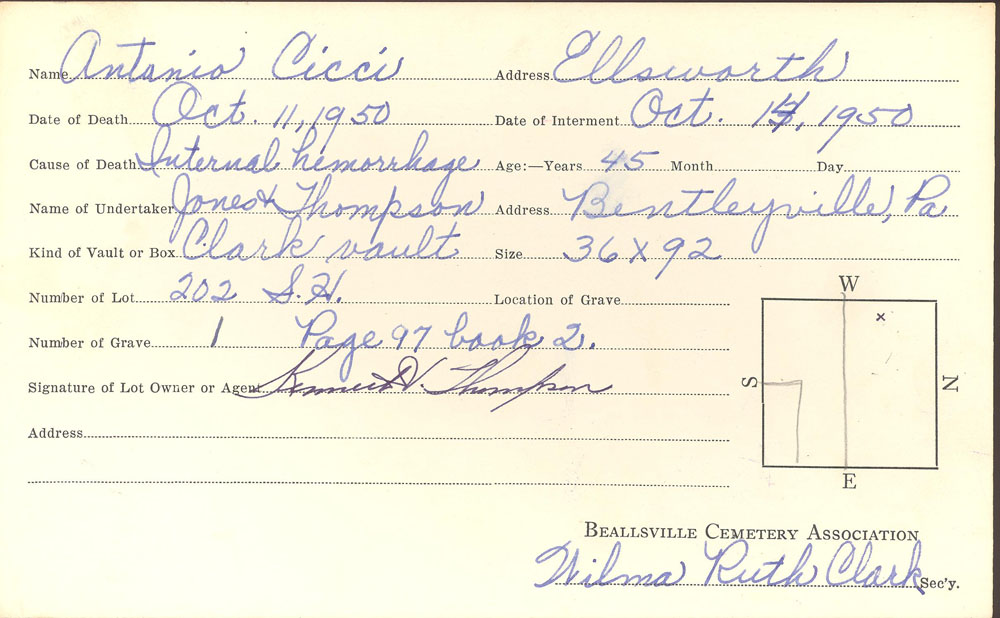 Name Antonio Cicci Address Ellsworth
Date of Death Oct. 11, 1950 Date of Interment Oct. 14, 1950
Cause of Death Internal hemorrhage Age:—Years 45 Month Day
Name of Undertaker Jones & Thompson Address Bentleyville, Pa
Kind of Vault or Box Clark vault Size 36 X 92
Number of Lot 202 S.H. Location of Grave
Number of Grave 1 Page 97 book 2.
Signature of Lot Owner or Agent Kenneth V. Thompson
Address
W
x
S
N
E
BEALLSVILLE CEMETERY ASSOCIATION
Wilma Ruth Clark Sec'y.